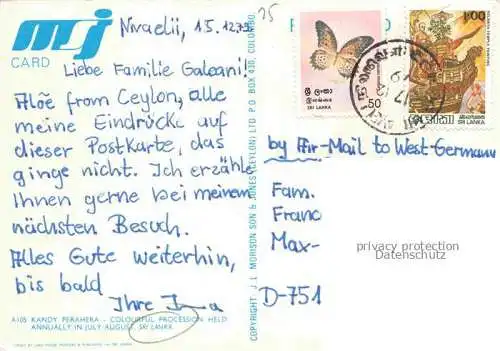 msj
CARD
Nivaelii, 15.12.79
Liebe Familie Galvani
Alõe from Ceylon, alle
meine Eindrücke auf
dieser Postkarte, das
ginge nicht. Ich erzähle
Ihnen gerne bei meinem
nächsten Besuch.
Alles Gute weiterhin,
bis bald
Ihre
A105 KANDY PERAHERA - COLOURFUL PROCESSION HELD
ANNUALLY IN JULY-AUGUST, SRI LANKA
COPYRIGHT: J. L. MORISON SON & JONES (CEYLON) LTD PO BOX 430, COLOMBO.
25
ශ්‍රී ලංකා
இலங்கை
SRI LANKA
50
1.00
SRI LANKA
by Air-Mail to West-Germany
Fam.
Franc
Max-
privacy protection
Datenschutz
D-751